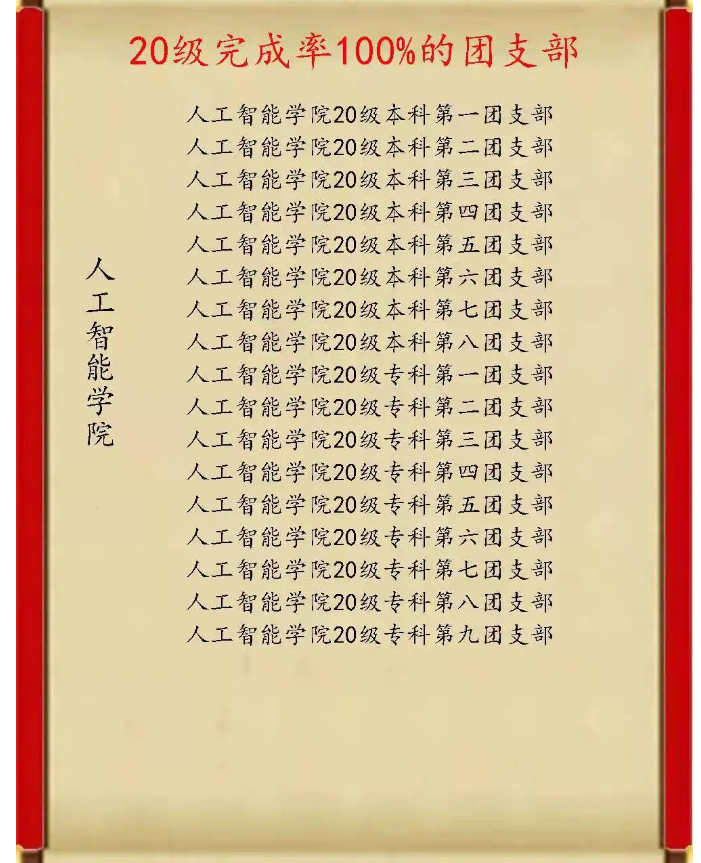 20级完成率100%的团支部
人工智能学院
人工智能学院20级本科第一团支部
人工智能学院20级本科第二团支部
人工智能学院20级本科第三团支部
人工智能学院20级本科第四团支部
人工智能学院20级本科第五团支部
人工智能学院20级本科第六团支部
人工智能学院20级本科第七团支部
人工智能学院20级本科第八团支部
人工智能学院20级专科第一团支部
人工智能学院20级专科第二团支部
人工智能学院20级专科第三团支部
人工智能学院20级专科第四团支部
人工智能学院20级专科第五团支部
人工智能学院20级专科第六团支部
人工智能学院20级专科第七团支部
人工智能学院20级专科第八团支部
人工智能学院20级专科第九团支部